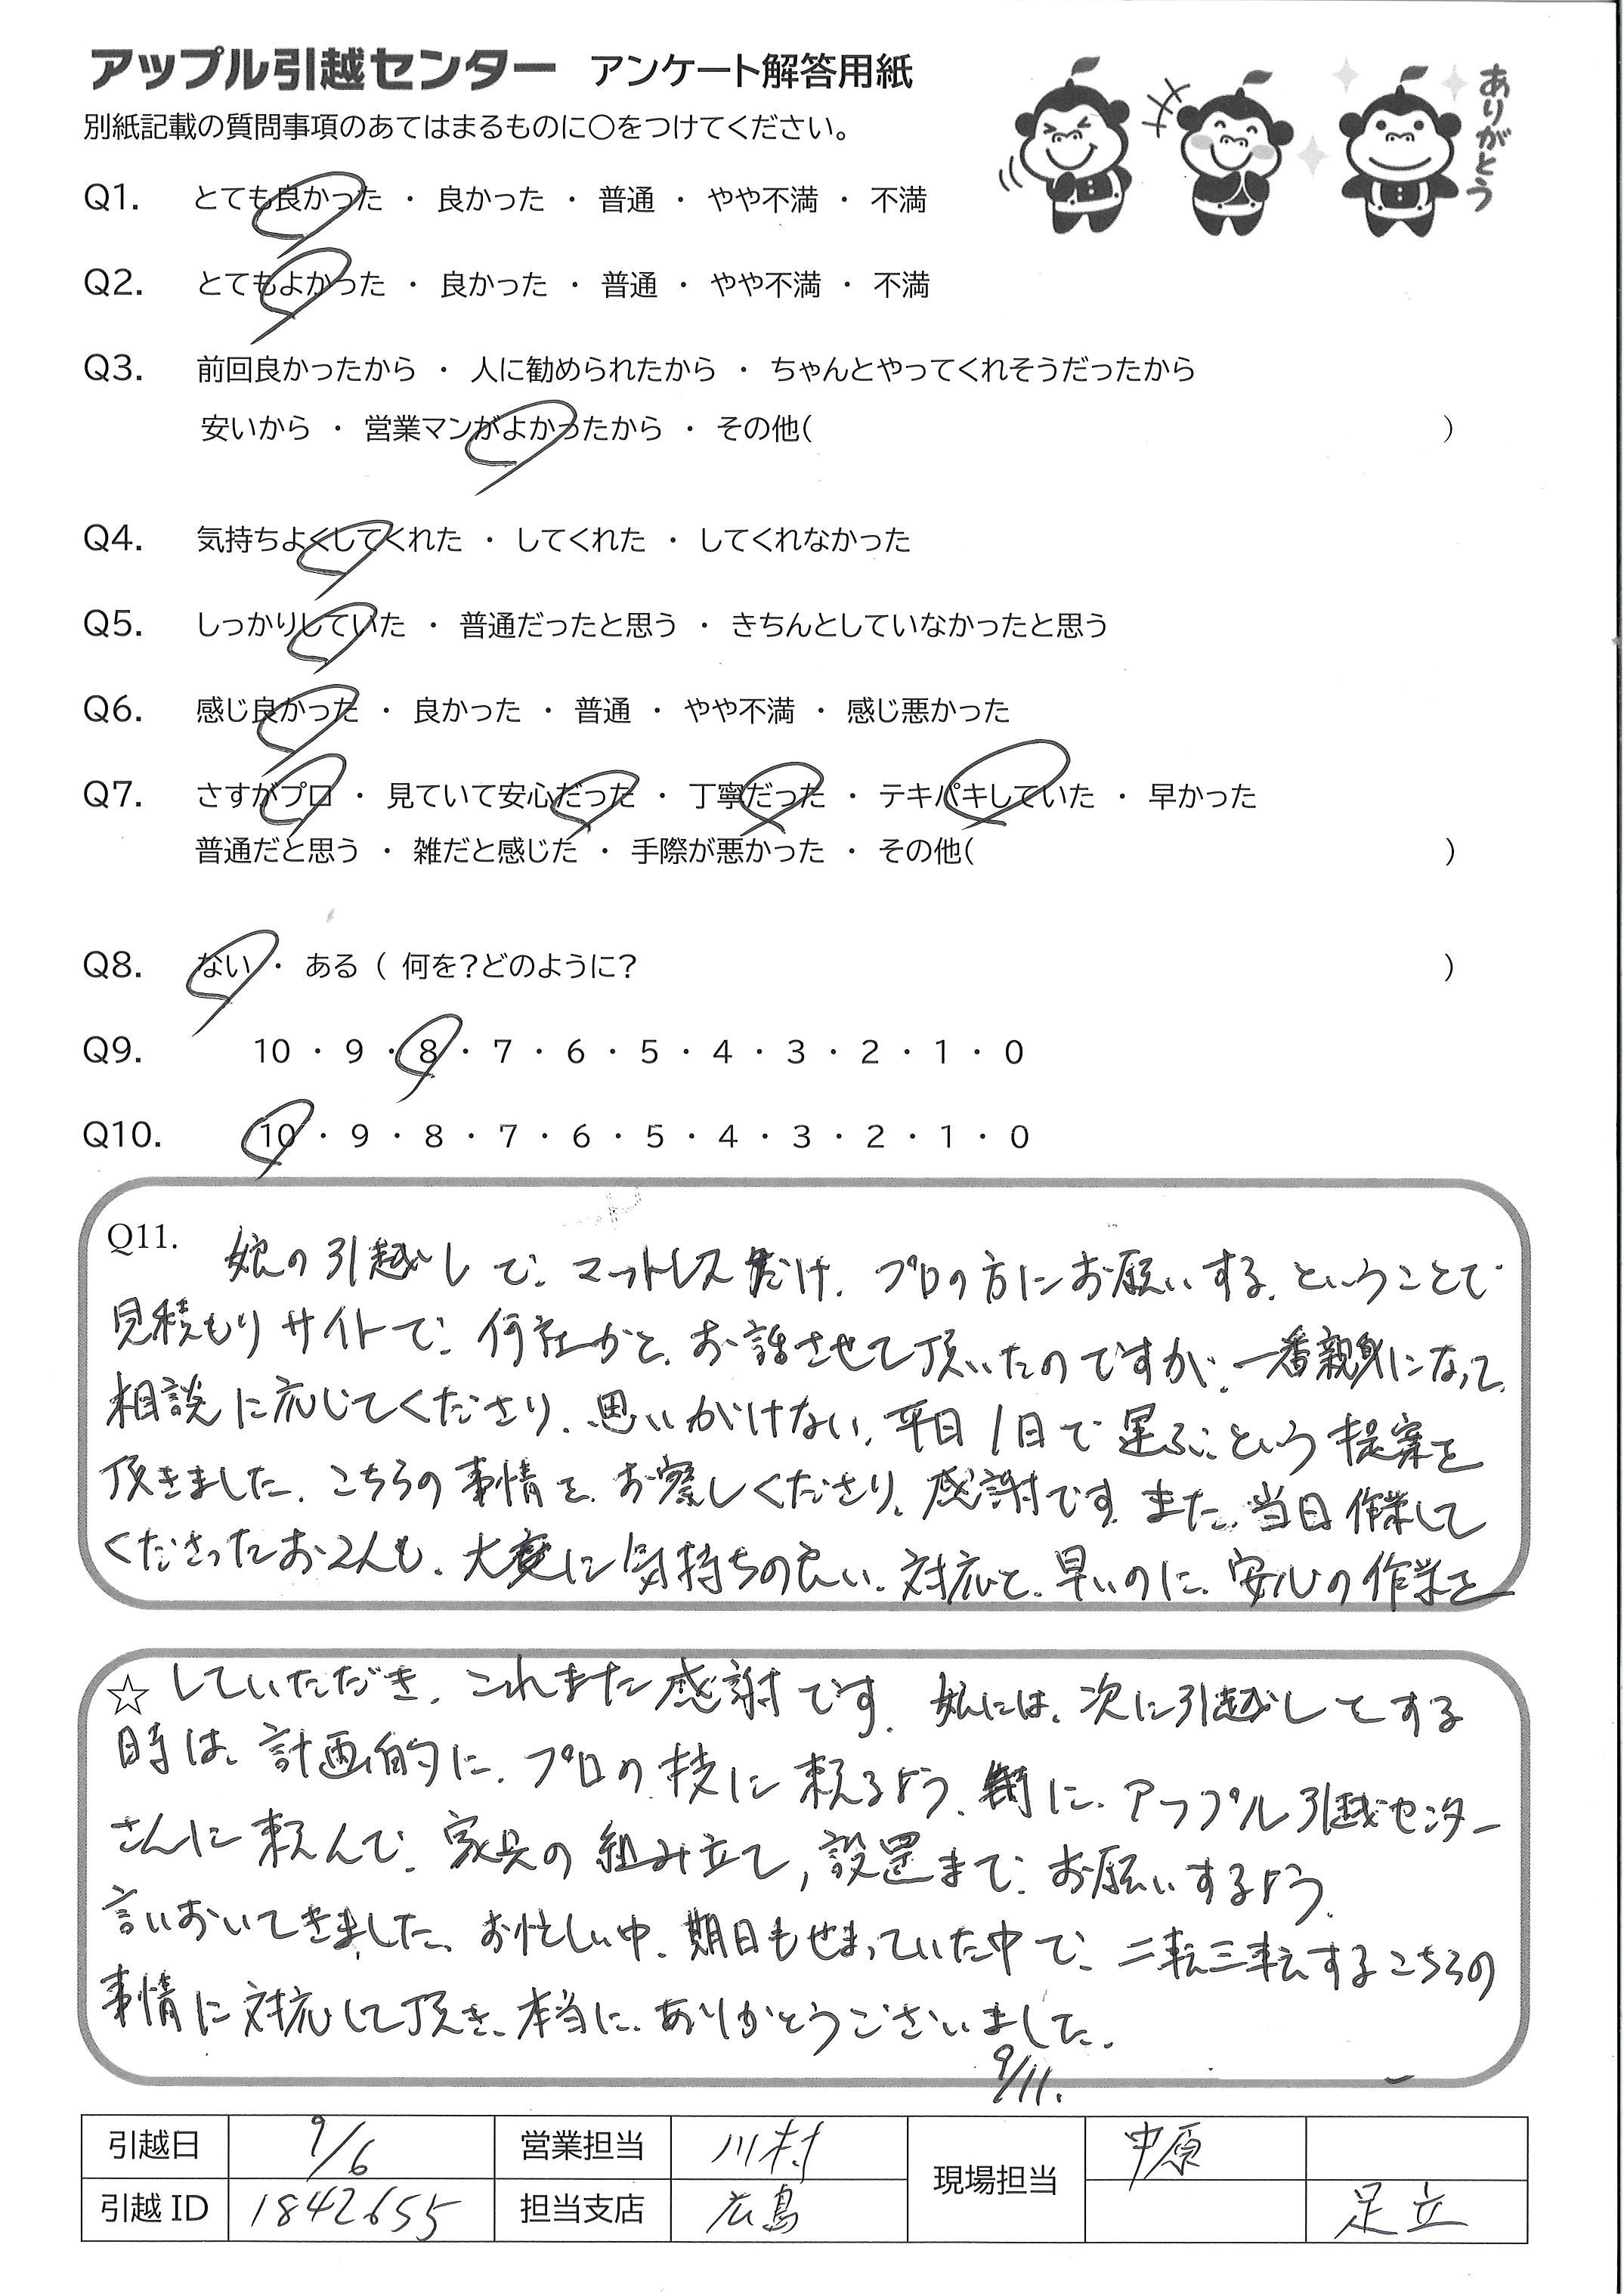 アップル引越センター アンケート解答用紙
別紙記載の質問事項のあてはまるものに○をつけてください。
ありがとう
Q1. とても良かった ・ 良かった ・ 普通 ・ やや不満 ・ 不満
Q2. とてもよかった ・ 良かった ・ 普通 ・ やや不満 ・ 不満
Q3. 前回良かったから ・ 人に勧められたから ・ ちゃんとやってくれそうだったから
安いから ・ 営業マンがよかったから ・ その他( )
Q4. 気持ちよくしてくれた ・ してくれた ・ してくれなかった
Q5. しっかりしていた ・ 普通だったと思う ・ きちんとしていなかったと思う
Q6. 感じ良かった ・ 良かった ・ 普通 ・ やや不満 ・ 感じ悪かった
Q7. さすがプロ ・ 見ていて安心だった ・ 丁寧だった ・ テキパキしていた ・ 早かった
普通だと思う ・ 雑だと感じた ・ 手際が悪かった ・ その他( )
Q8. ない ・ ある ( 何を?どのように? )
Q9. 10 ・ 9 ・ 8 ・ 7 ・ 6 ・ 5 ・ 4 ・ 3 ・ 2 ・ 1 ・ 0
Q10. 10 ・ 9 ・ 8 ・ 7 ・ 6 ・ 5 ・ 4 ・ 3 ・ 2 ・ 1 ・ 0
Q11. 娘の引越しで、マットレスだけ、プロの方にお願いする、ということで
見積もりサイトで、何社かと、お話させて頂いたのですが、一番親身になって、
相談に応じてくださり、思いがけない、平日1日で運ぶという提案を
頂きました。こちらの事情を、お察しくださり、感謝です。また、当日作業して
くださったお2人も、大変に気持ちの良い、対応と、早いのに、安心の作業を
☆ していただき、これまた感謝です。娘には、次に引越しをする
時は、計画的に、プロの技に頼るよう、特に、アップル引越センター
さんに頼んで、家具の組み立て,設置まで、お願いするよう、
言いおいてきました。お忙しい中、期日もせまっていた中で、二転三転するこちらの
事情に対応して頂き、本当に、ありがとうございました。
9/11.
引越日 9/6 営業担当 川村 現場担当 中原
引越ID 1842655 担当支店 広島 足立